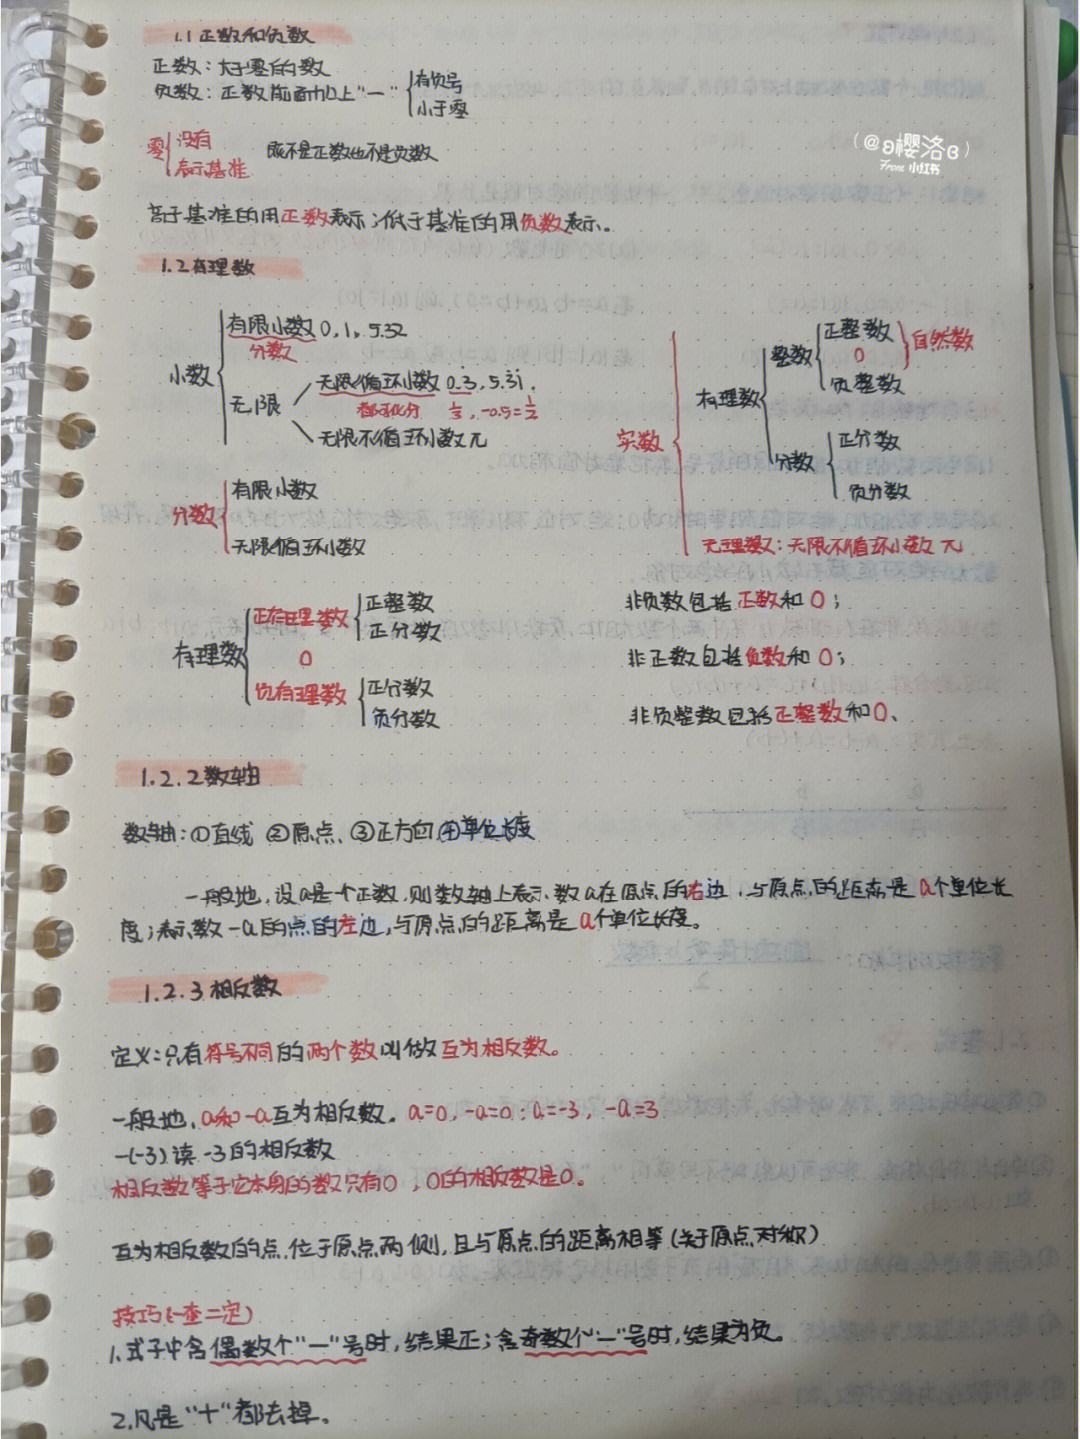 1.1 正数和负数
正数：大于零的数
负数：正数前面加上“一” 有负号
小于零
零 没有
表示基准 既不是正数也不是负数
(@a樱洛B)
From 小红书
高于基准的用正数表示；低于基准的用负数表示。
1.2 有理数
小数 有限小数 0, 1, 5.32
分数
无限 无限循环小数 0.3, 5.31.
都可化分 1/3, -0.5=1/2
无限不循环小数 π
分数 有限小数
无限循环小数
实数 有理数 整数 正整数
0 自然数
负整数
分数 正分数
负分数
无理数：无限不循环小数 π
有理数 正有理数 正整数
正分数
0
负有理数 正分数
负分数
非负数包括正数和0；
非正数包括负数和0；
非负整数包括正整数和0、
1.2.2 数轴
数轴：①直线 ②原点、③正方向 ④单位长度
一般地，设a是一个正数，则数轴上表示数a在原点的右边，与原点的距离是a个单位长
度；表示数-a的点的左边，与原点的距离是a个单位长度。
1.2.3 相反数
定义：只有符号不同的两个数叫做互为相反数。
一般地，a和-a互为相反数。a=0，-a=0；a=-3，-a=3
-(-3)读-3的相反数
相反数等于它本身的数只有0，0的相反数是0。
互为相反数的点，位于原点两侧，且与原点的距离相等(关于原点对称)
技巧(一查二定)
1.式子中含偶数个“一”号时，结果正；含奇数个“一”号时，结果为负。
2.凡是“十”都去掉。